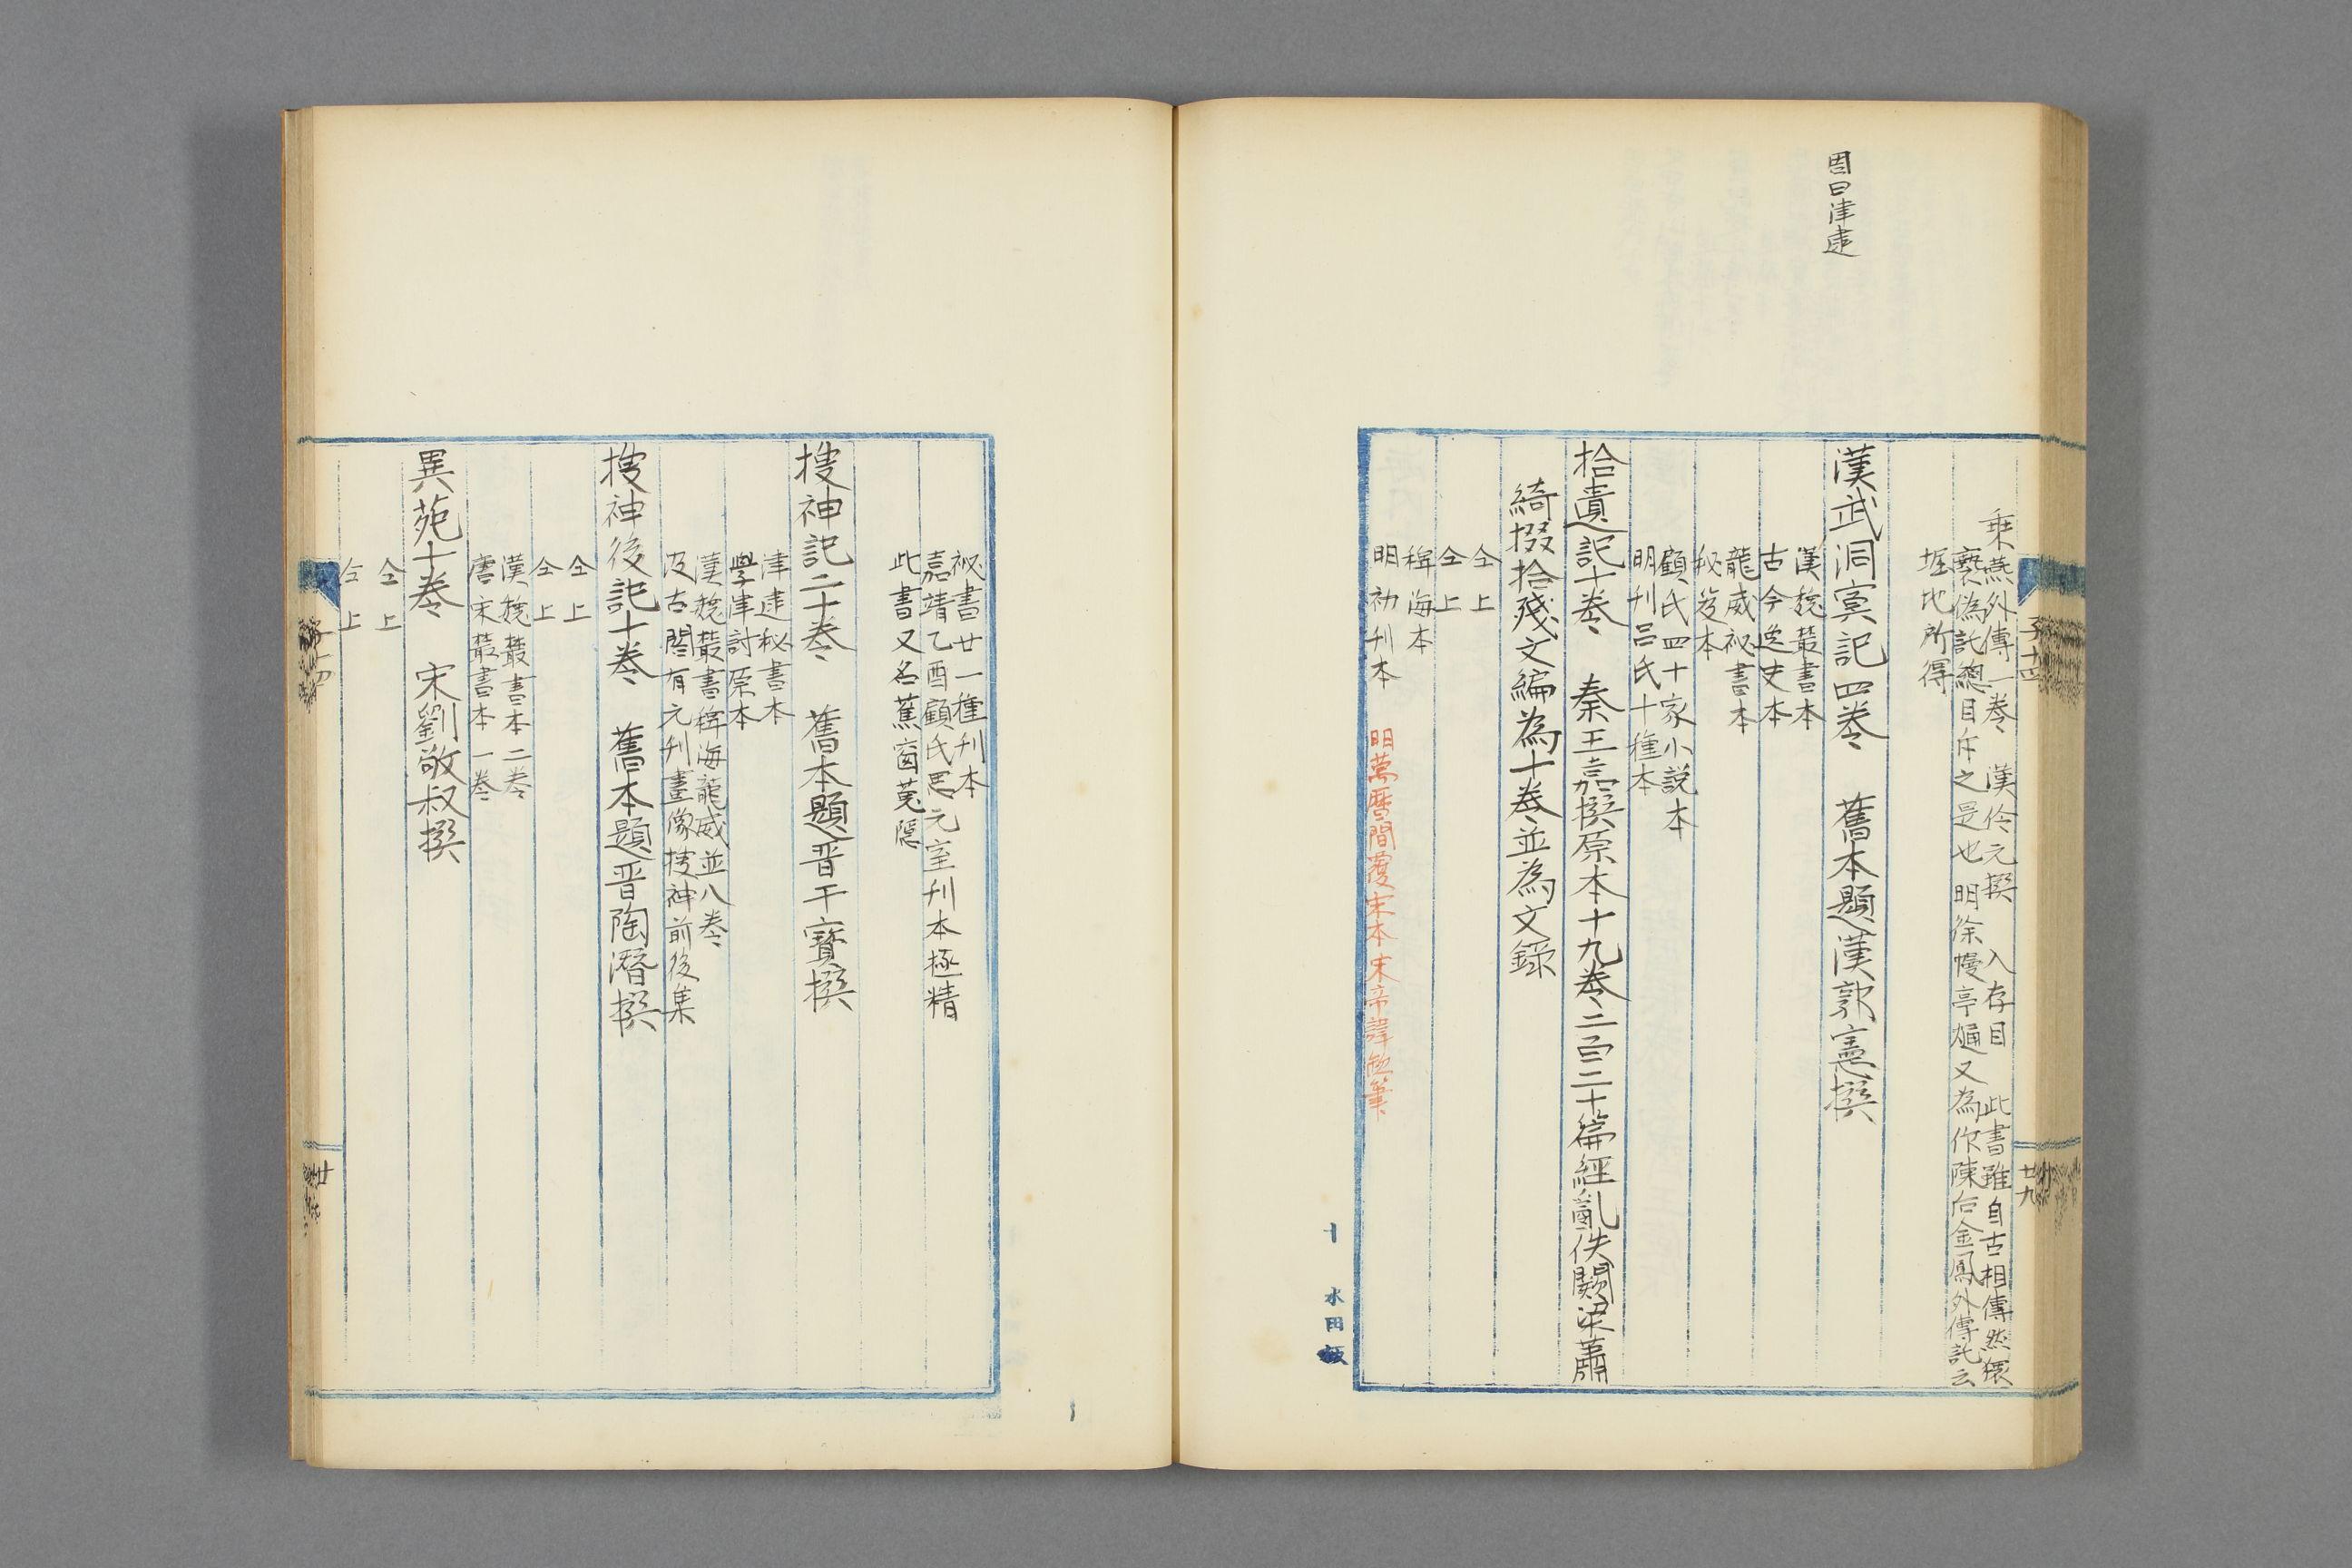 因曰津逮
乗燕外傳一卷 漢伶元撰 入存目 此書雖自古相傳然猥
褻偽託總目斥之是也 明徐𤊹亭𤊹又為作陳后金鳳外傳託云
堀地所得
漢武洞冥記四卷 舊本題漢郭憲撰
漢魏叢書本
古今逸史本
龍威祕書本
秘笈本
顧氏四十家小説本
明刊呂氏十種本
拾遺記十卷 秦王嘉撰原本十九卷二百二十篇經亂佚闕梁蕭
綺掇拾殘文編為十卷並為文錄
仝上
仝上
稗海本
明初刊本 明萬暦間覆宋本宋帝諱缺筆
子十四
廿九
十
水田
祕書廿一種刊本
嘉靖乙酉顧氏思元室刊本極精
此書又名蕉窗蒐隱
搜神記二十卷 舊本題晋干寶撰
津逮秘書本
學津討原本
漢魏叢書稗海龍威並八卷
汲古閣有元刊畫像搜神前後集
搜神後記十卷 舊本題晋陶潛撰
仝上
仝上
漢魏叢書本二卷
唐宋叢書本一卷
異苑十卷 宋劉敬叔撰
仝上
仝上